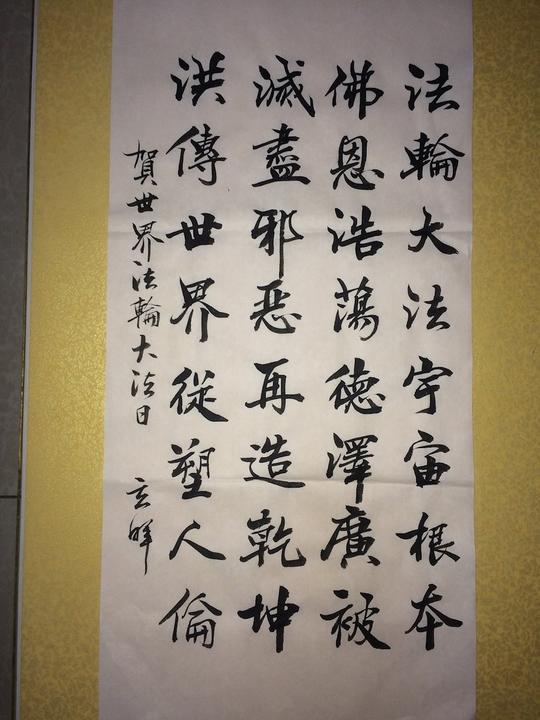 法輪大法宇宙根本
佛恩浩蕩德澤廣被
滅盡邪惡再造乾坤
洪傳世界從塑人倫
賀世界法輪大法日 玄暉